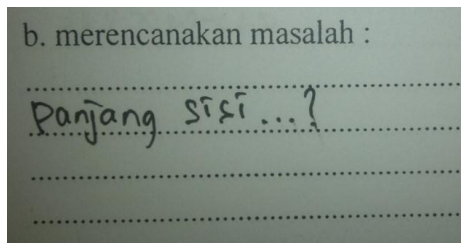 b. merencanakan masalah :
Panjang sisi...?